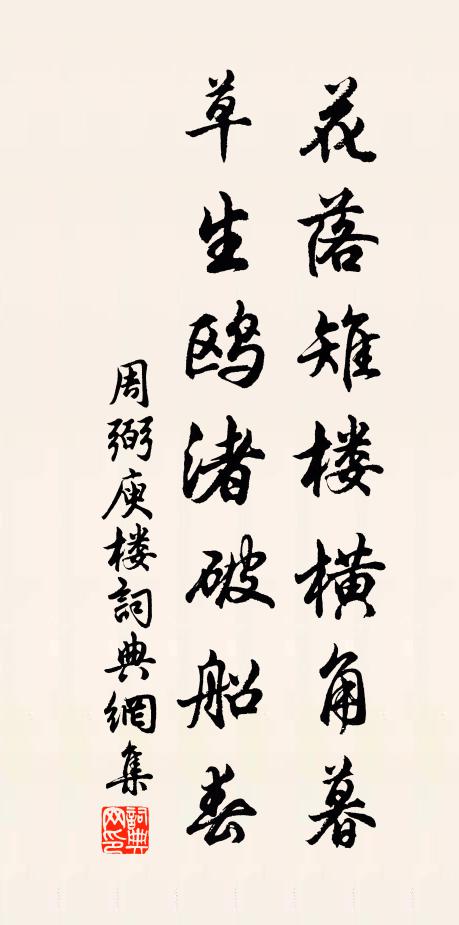 花落雉楼横角暮
草生鸥渚破船春
周弼庾楼詞典網集
詞典网印